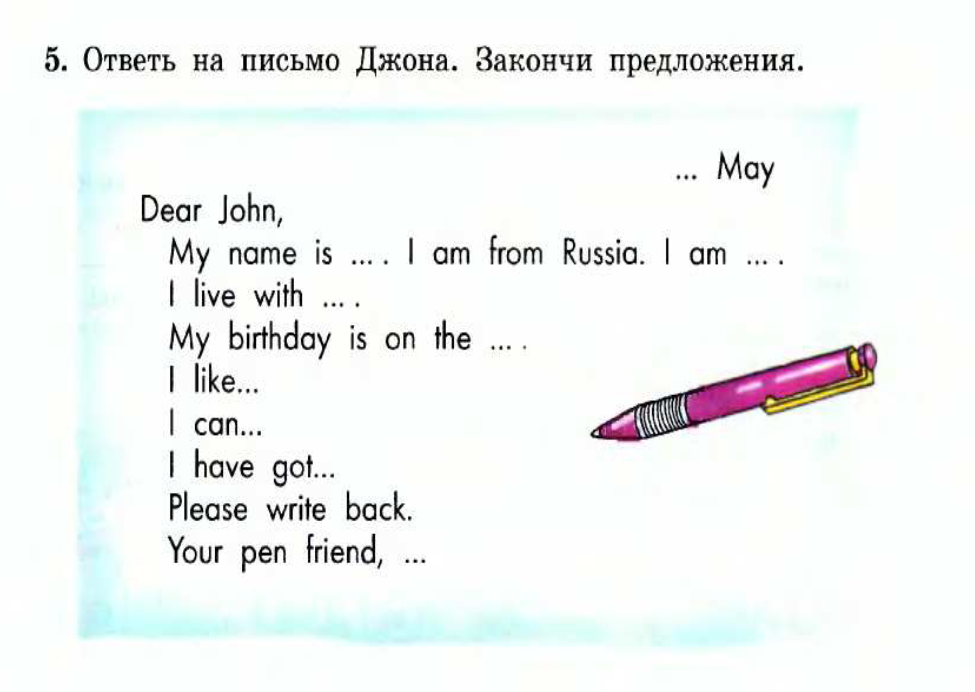 5. Ответь на письмо Джона. Закончи предложения.
... May
Dear John,
My name is ... . I am from Russia. I am ... .
I live with ... .
My birthday is on the ... .
I like...
I can...
I have got...
Please write back.
Your pen friend, ...